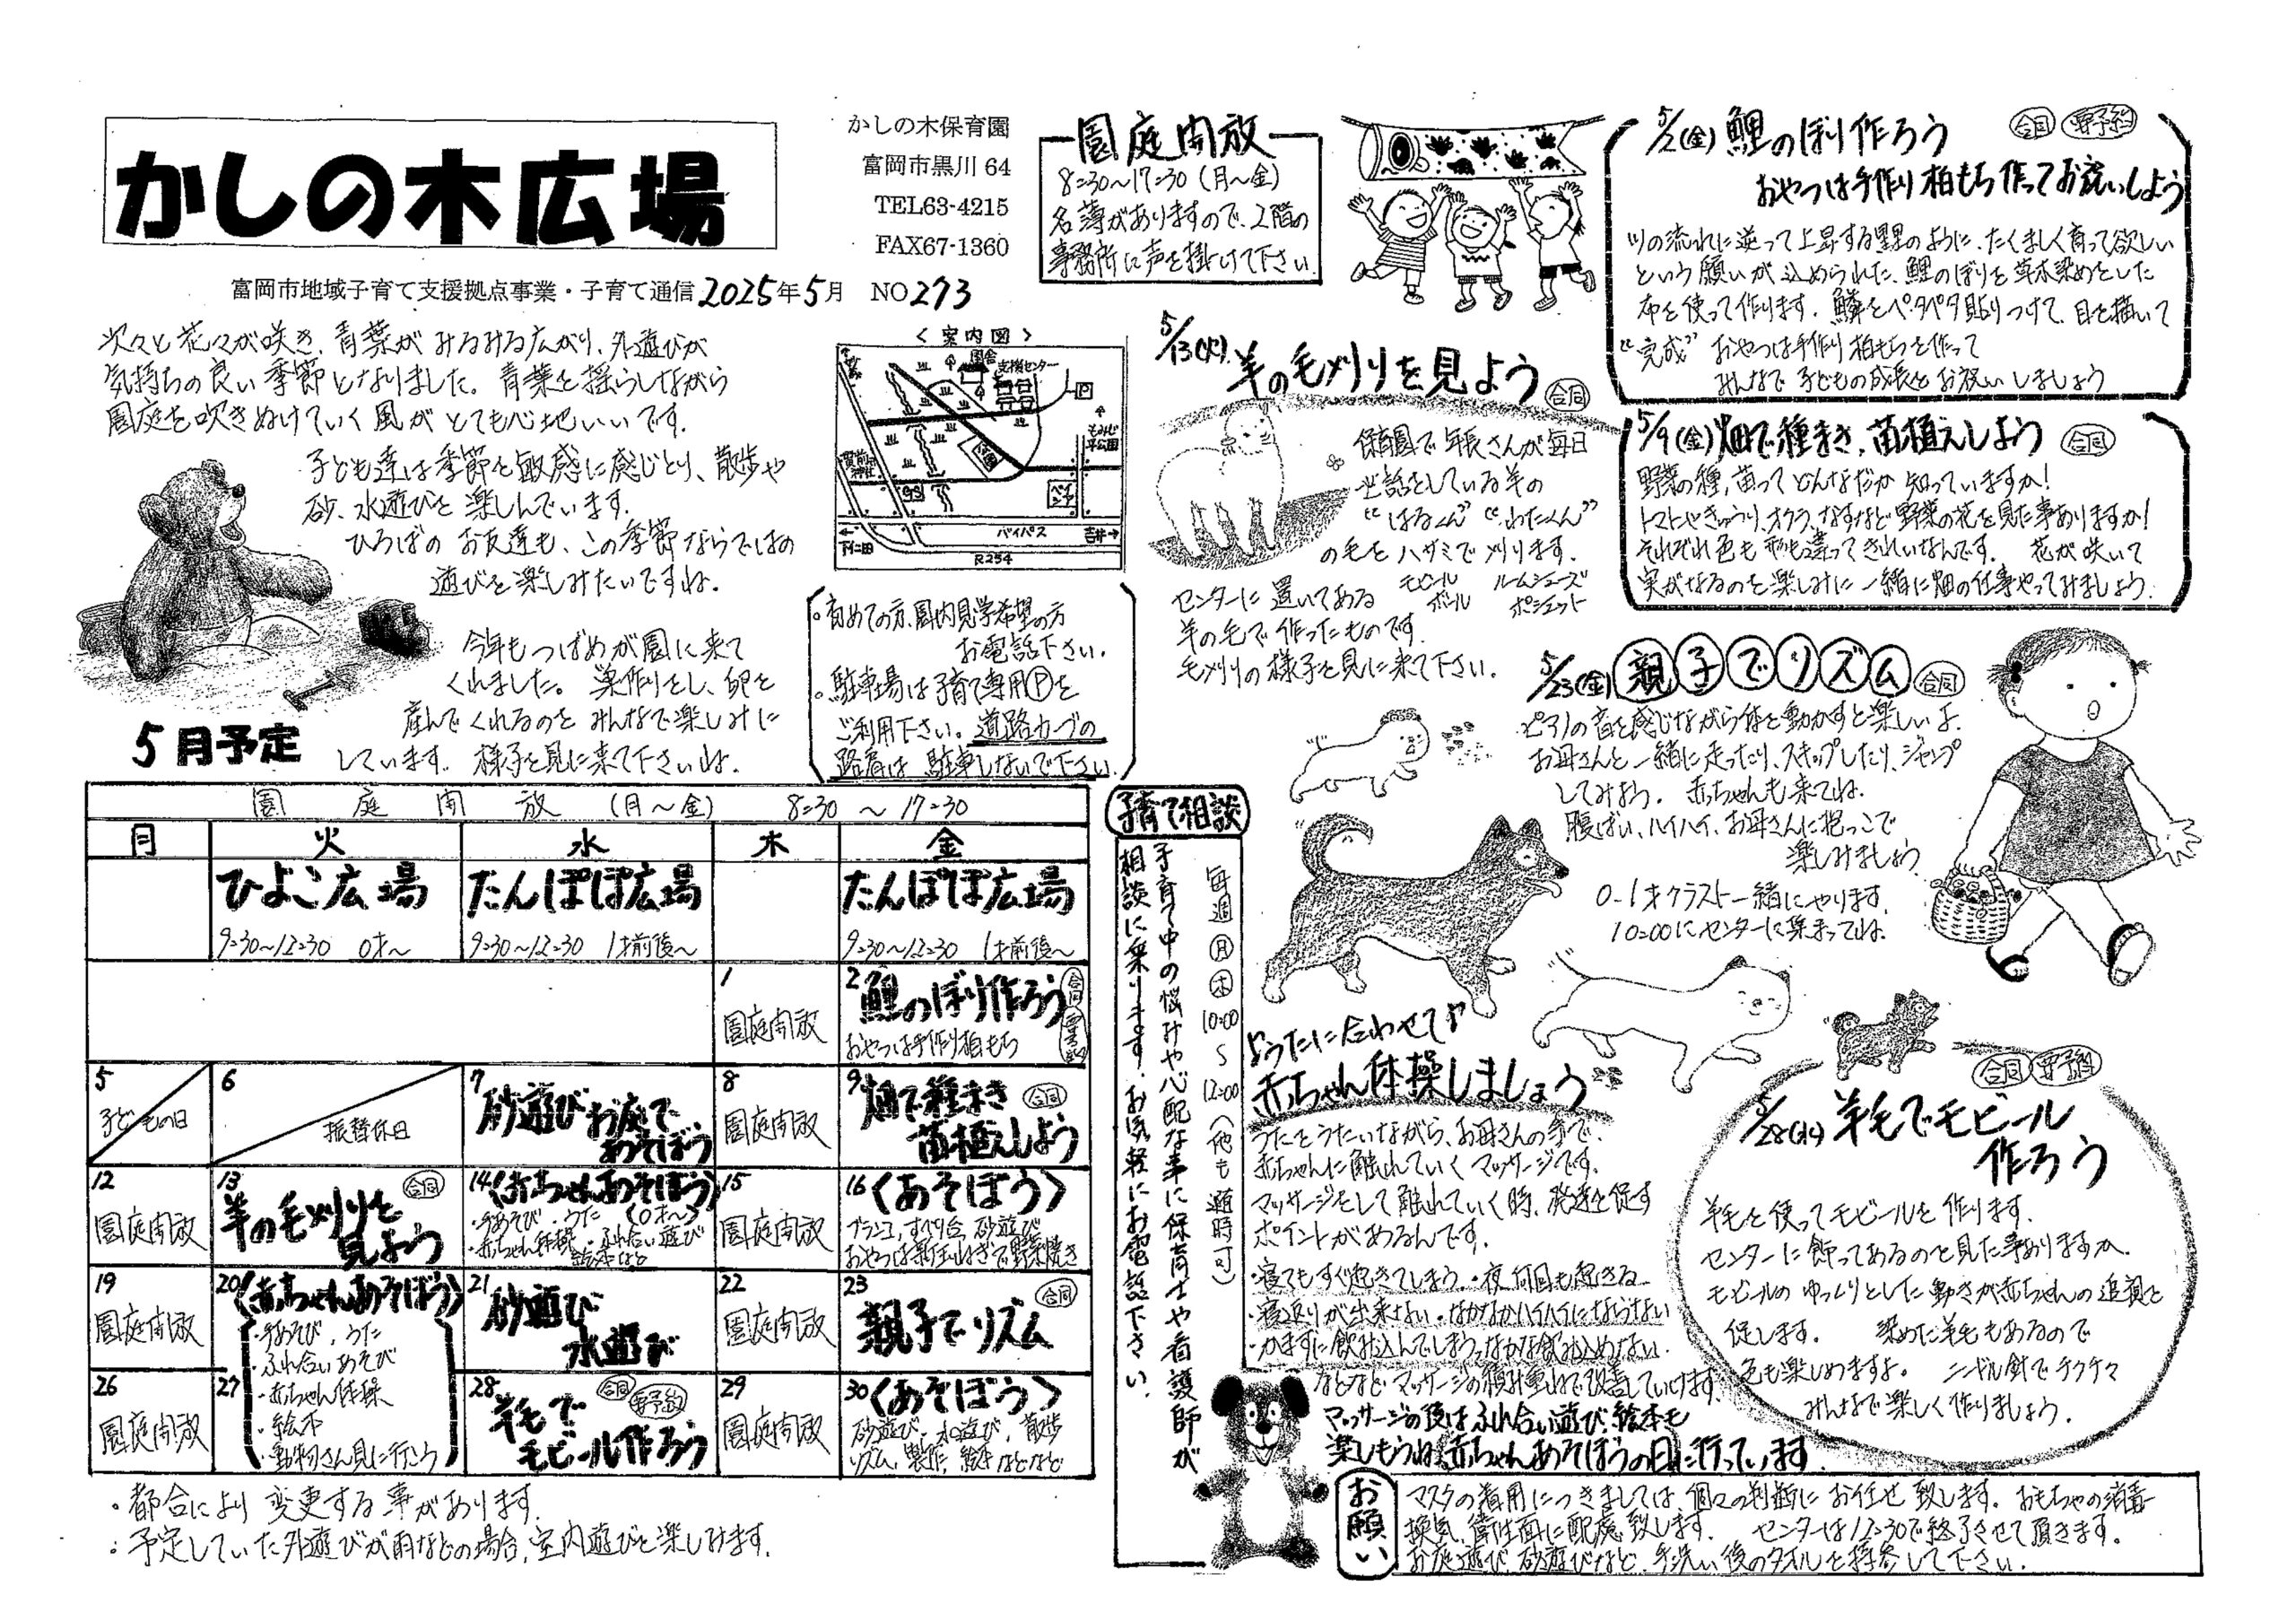 かしの木広場
かしの木保育園
富岡市黒川 64
TEL63-4215
FAX67-1360
富岡市地域子育て支援拠点事業・子育て通信 2025年5月 NO273
園庭開放
8:30〜17:30(月〜金)
名簿がありますので、2階の
事務所に声を掛けて下さい
次々と花々が咲き、青葉がみるみる広がり、外遊びが
気持ちの良い季節となりました。青葉を揺らしながら
園庭を吹きぬけていく風がとても心地いいです。
子ども達は季節を敏感に感じとり、散歩や
砂、水遊びを楽しんでいます。
ひろばのお友達も、この季節ならではの
遊びを楽しみたいですね。
今年もつばめが園に来て
くれました。巣作りをし、卵を
産んでくれるのをみんなで楽しみに
しています。様子を見に来て下さいね。
<案内図>
園舎
支援センター
P
もみじ平公園
貫前神社
バイパス
下仁田
吉井
R254
・初めての方、園内見学希望の方
お電話下さい。
・駐車場は子育て専用Ⓟを
ご利用下さい。道路カーブの
路肩は駐車しないで下さい。
5/2(金) 鯉のぼり作ろう 合同 要予約
おやつは手作り柏もち作ってお祝いしよう
川の流れに逆って上昇する鯉のように、たくましく育って欲しい
という願いが込められた、鯉のぼりを草木染めをした
布を使って作ります。鱗をペタペタ貼りつけて、目を描いて
“完成” おやつは手作り柏もちを作って
みんなで子どもの成長をお祝いしましょう
5/9(金) 畑で種まき、苗植えしよう 合同
野菜の種、苗ってどんなだか知っていますか!
トマトやきゅうり、オクラ、なすなど野菜の花を見た事ありますか!
それぞれ色も形も違ってきれいなんです。 花が咲いて
実がなるのを楽しみに一緒に畑の仕事やってみましょう。
5/13(火) 羊の毛刈りを見よう 合同
保育園で年長さんが毎日
世話をしている羊の
“はるくん” “わたくん”
の毛をハサミで刈ります。
センターに置いてある モビール ルームシューズ
ボール ポシェット
羊の毛で作ったものです。
毛刈りの様子を見に来て下さい。
5/23(金) 親子でリズム 合同
ピアノの音を感じながら体を動かすと楽しいよ。
お母さんと一緒に走ったり、スキップしたり、ジャンプ
してみよう。赤ちゃんも来てね。
腹ばい、ハイハイ、お母さんに抱っこで
楽しみましょう
0-1才クラスと一緒にやります。
10:00にセンターに集まってね。
5月予定
園庭開放 (月〜金) 8:30〜17:30
月 火 水 木 金
ひよこ広場 たんぽぽ広場 たんぽぽ広場
9:30〜12:30 0才〜 9:30〜12:30 1才前後〜 9:30〜12:30 1才前後〜
1 園庭開放
2 鯉のぼり作ろう 合同 要予約
おやつは手作り柏もち
5 子どもの日
6 振替休日
7 砂遊びお庭で
あそぼう
8 園庭開放
9 畑で種まき 合同
苗植えしよう
12 園庭開放
13 羊の毛刈りを 合同
見よう
14 〈赤ちゃんあそぼう〉
・手あそび・うた (0才〜)
・赤ちゃん体操・ふれ合い遊び
絵本など
15 園庭開放
16 〈あそぼう〉
ブランコ、すべり台、砂遊び
おやつは新玉ねぎで野菜焼き
19 園庭開放
20 〈赤ちゃんあそぼう〉
・手あそび、うた
・ふれ合いあそび
・赤ちゃん体操
・絵本
・動物さん見に行こう
21 砂遊び
水遊び
22 園庭開放
23 親子でリズム 合同
26 園庭開放
27
28 羊毛で 合同 要予約
モビール作ろう
29 園庭開放
30 〈あそぼう〉
砂遊び、水遊び、散歩
リズム、製作、絵本などなど
・都合により変更する事があります。
・予定していた外遊びが雨などの場合、室内遊びを楽しみます。
子育て相談
毎週 月 木 10:00〜12:00 (他も随時可)
子育て中の悩みや心配な事に保育士や看護師が
相談に乗ります。お気軽にお電話下さい。
♪うたに合わせて♪
赤ちゃん体操しましょう
うたをうたいながら、お母さんの手で、
赤ちゃんに触れていくマッサージです。
マッサージをして触れていく時、発達を促す
ポイントがあるんです。
・寝てもすぐ起きてしまう・夜何回も起きる
・寝返りが出来ない・なかなかハイハイにならない
・かまずに飲み込んでしまう、なかなか飲み込めない
などなど マッサージの積み重ねで改善していけます。
マッサージの後はふれ合い遊び、絵本も
楽しもうね 赤ちゃんあそぼうの日に行っています。
合同 要予約
5/28(水) 羊毛でモビール
作ろう
羊毛を使ってモビールを作ります。
センターに飾ってあるのを見た事ありますか。
モビールのゆっくりとした動きが赤ちゃんの追視を
促します。 染めた羊毛もあるので
色も楽しめますよ。 ニードル針でチクチク
みんなで楽しく作りましょう。
お願い
マスクの着用につきましては、個々の判断にお任せ致します。おもちゃの消毒
換気、衛生面に配慮致します。 センターは12:30で終了させて頂きます。
お庭遊び、砂遊びなど、手洗い後のタオルを持参して下さい。